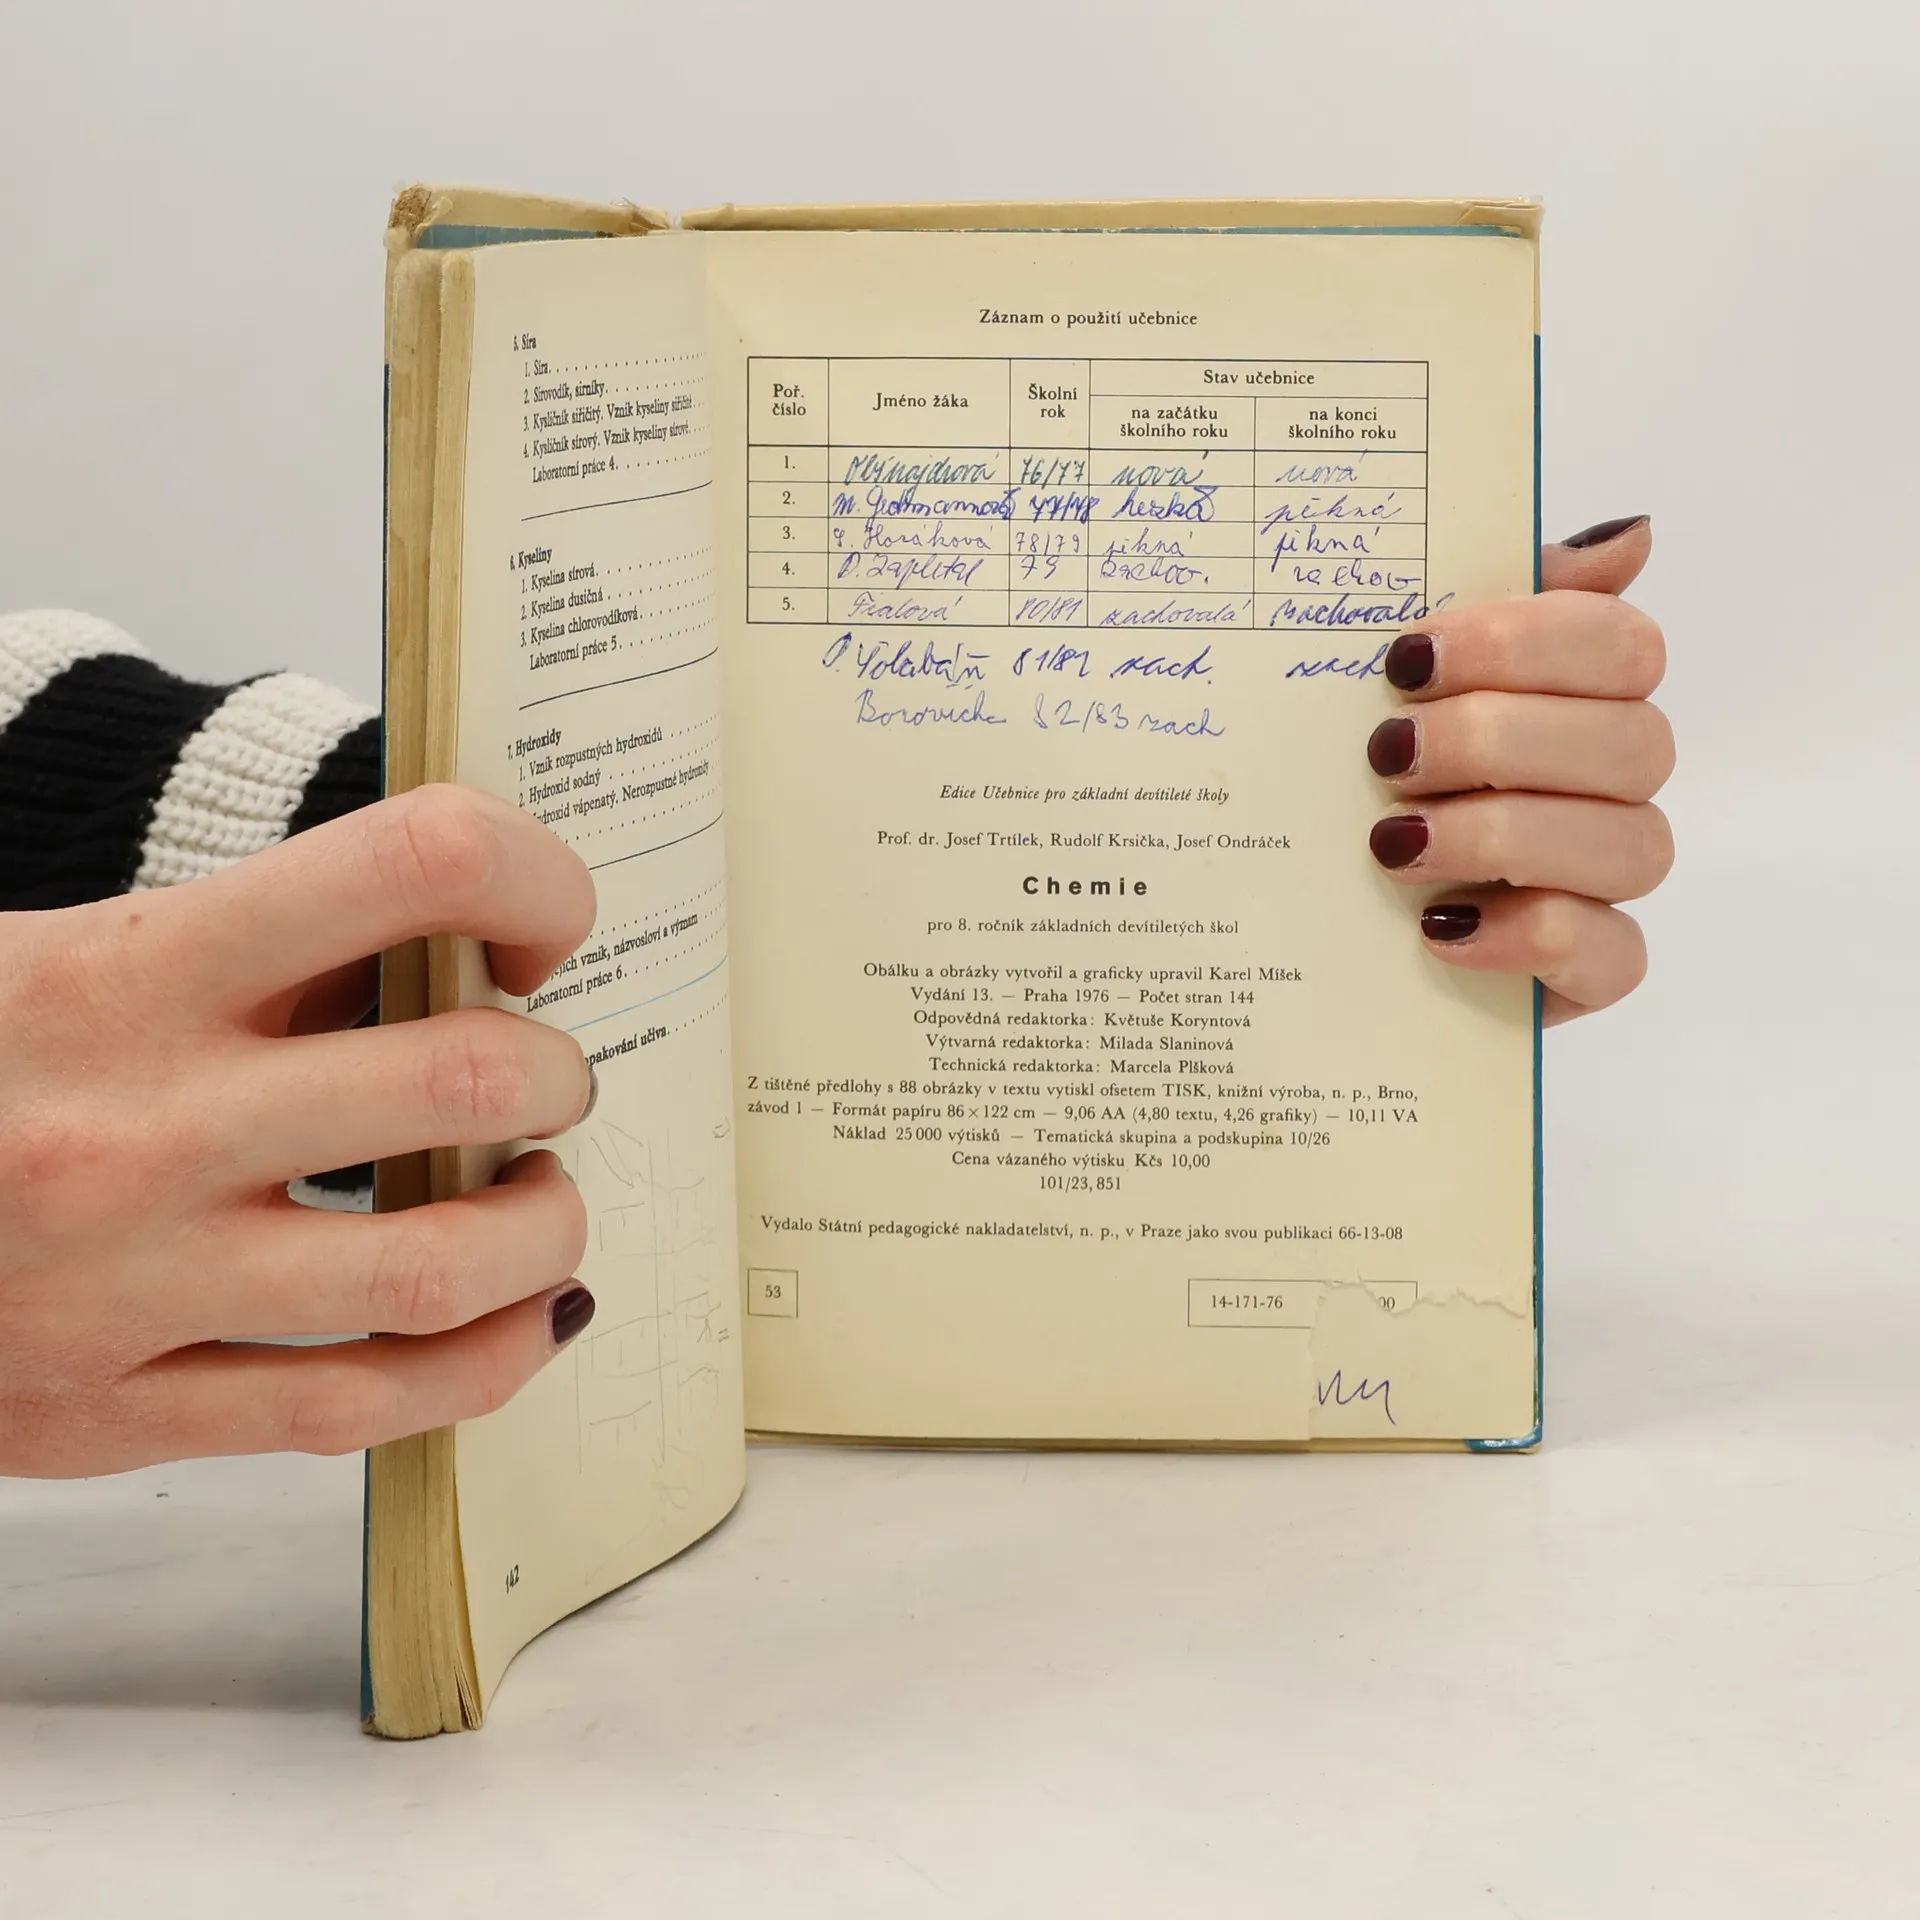 5. Síra
1. Síra
2. Sirovodík, sirníky
3. Kysličník siřičitý. Vznik kyseliny siřičité
4. Kysličník sírový. Vznik kyseliny sírové
Laboratorní práce 4
6. Kyseliny
1. Kyselina sírová
2. Kyselina dusičná
3. Kyselina chlorovodíková
Laboratorní práce 5
7. Hydroxidy
1. Vznik rozpustných hydroxidů
2. Hydroxid sodný
vápenatý. Nerozpustné hydroxidy
vznik, názvosloví a význam
Laboratorní práce 6
učiva
142
Záznam o použití učebnice
Poř. číslo
Jméno žáka
Školní rok
Stav učebnice
na začátku školního roku
na konci školního roku
1. 76/77 nová nová
2. M. 77/78 hezká pěkná
3. Horáková 78/79 pěkná pěkná
4. D. Zapletal 79 zachov. zachov
5. Fialová 80/81 zachovalá zachovalá
81/82 zach. zach
82/83 zach
Edice Učebnice pro základní devítileté školy
Prof. dr. Josef Trtílek, Rudolf Krsička, Josef Ondráček
Chemie
pro 8. ročník základních devítiletých škol
Obálku a obrázky vytvořil a graficky upravil Karel Míšek
Vydání 13. — Praha 1976 — Počet stran 144
Odpovědná redaktorka: Květuše Koryntová
Výtvarná redaktorka: Milada Slaninová
Technická redaktorka: Marcela Plšková
Z tištěné předlohy s 88 obrázky v textu vytiskl ofsetem TISK, knižní výroba, n. p., Brno,
závod 1 — Formát papíru 86 × 122 cm — 9,06 AA (4,80 textu, 4,26 grafiky) — 10,11 VA
Náklad 25 000 výtisků — Tematická skupina a podskupina 10/26
Cena vázaného výtisku Kčs 10,00
101/23, 851
Vydalo Státní pedagogické nakladatelství, n. p., v Praze jako svou publikaci 66-13-08
53
14-171-76 00